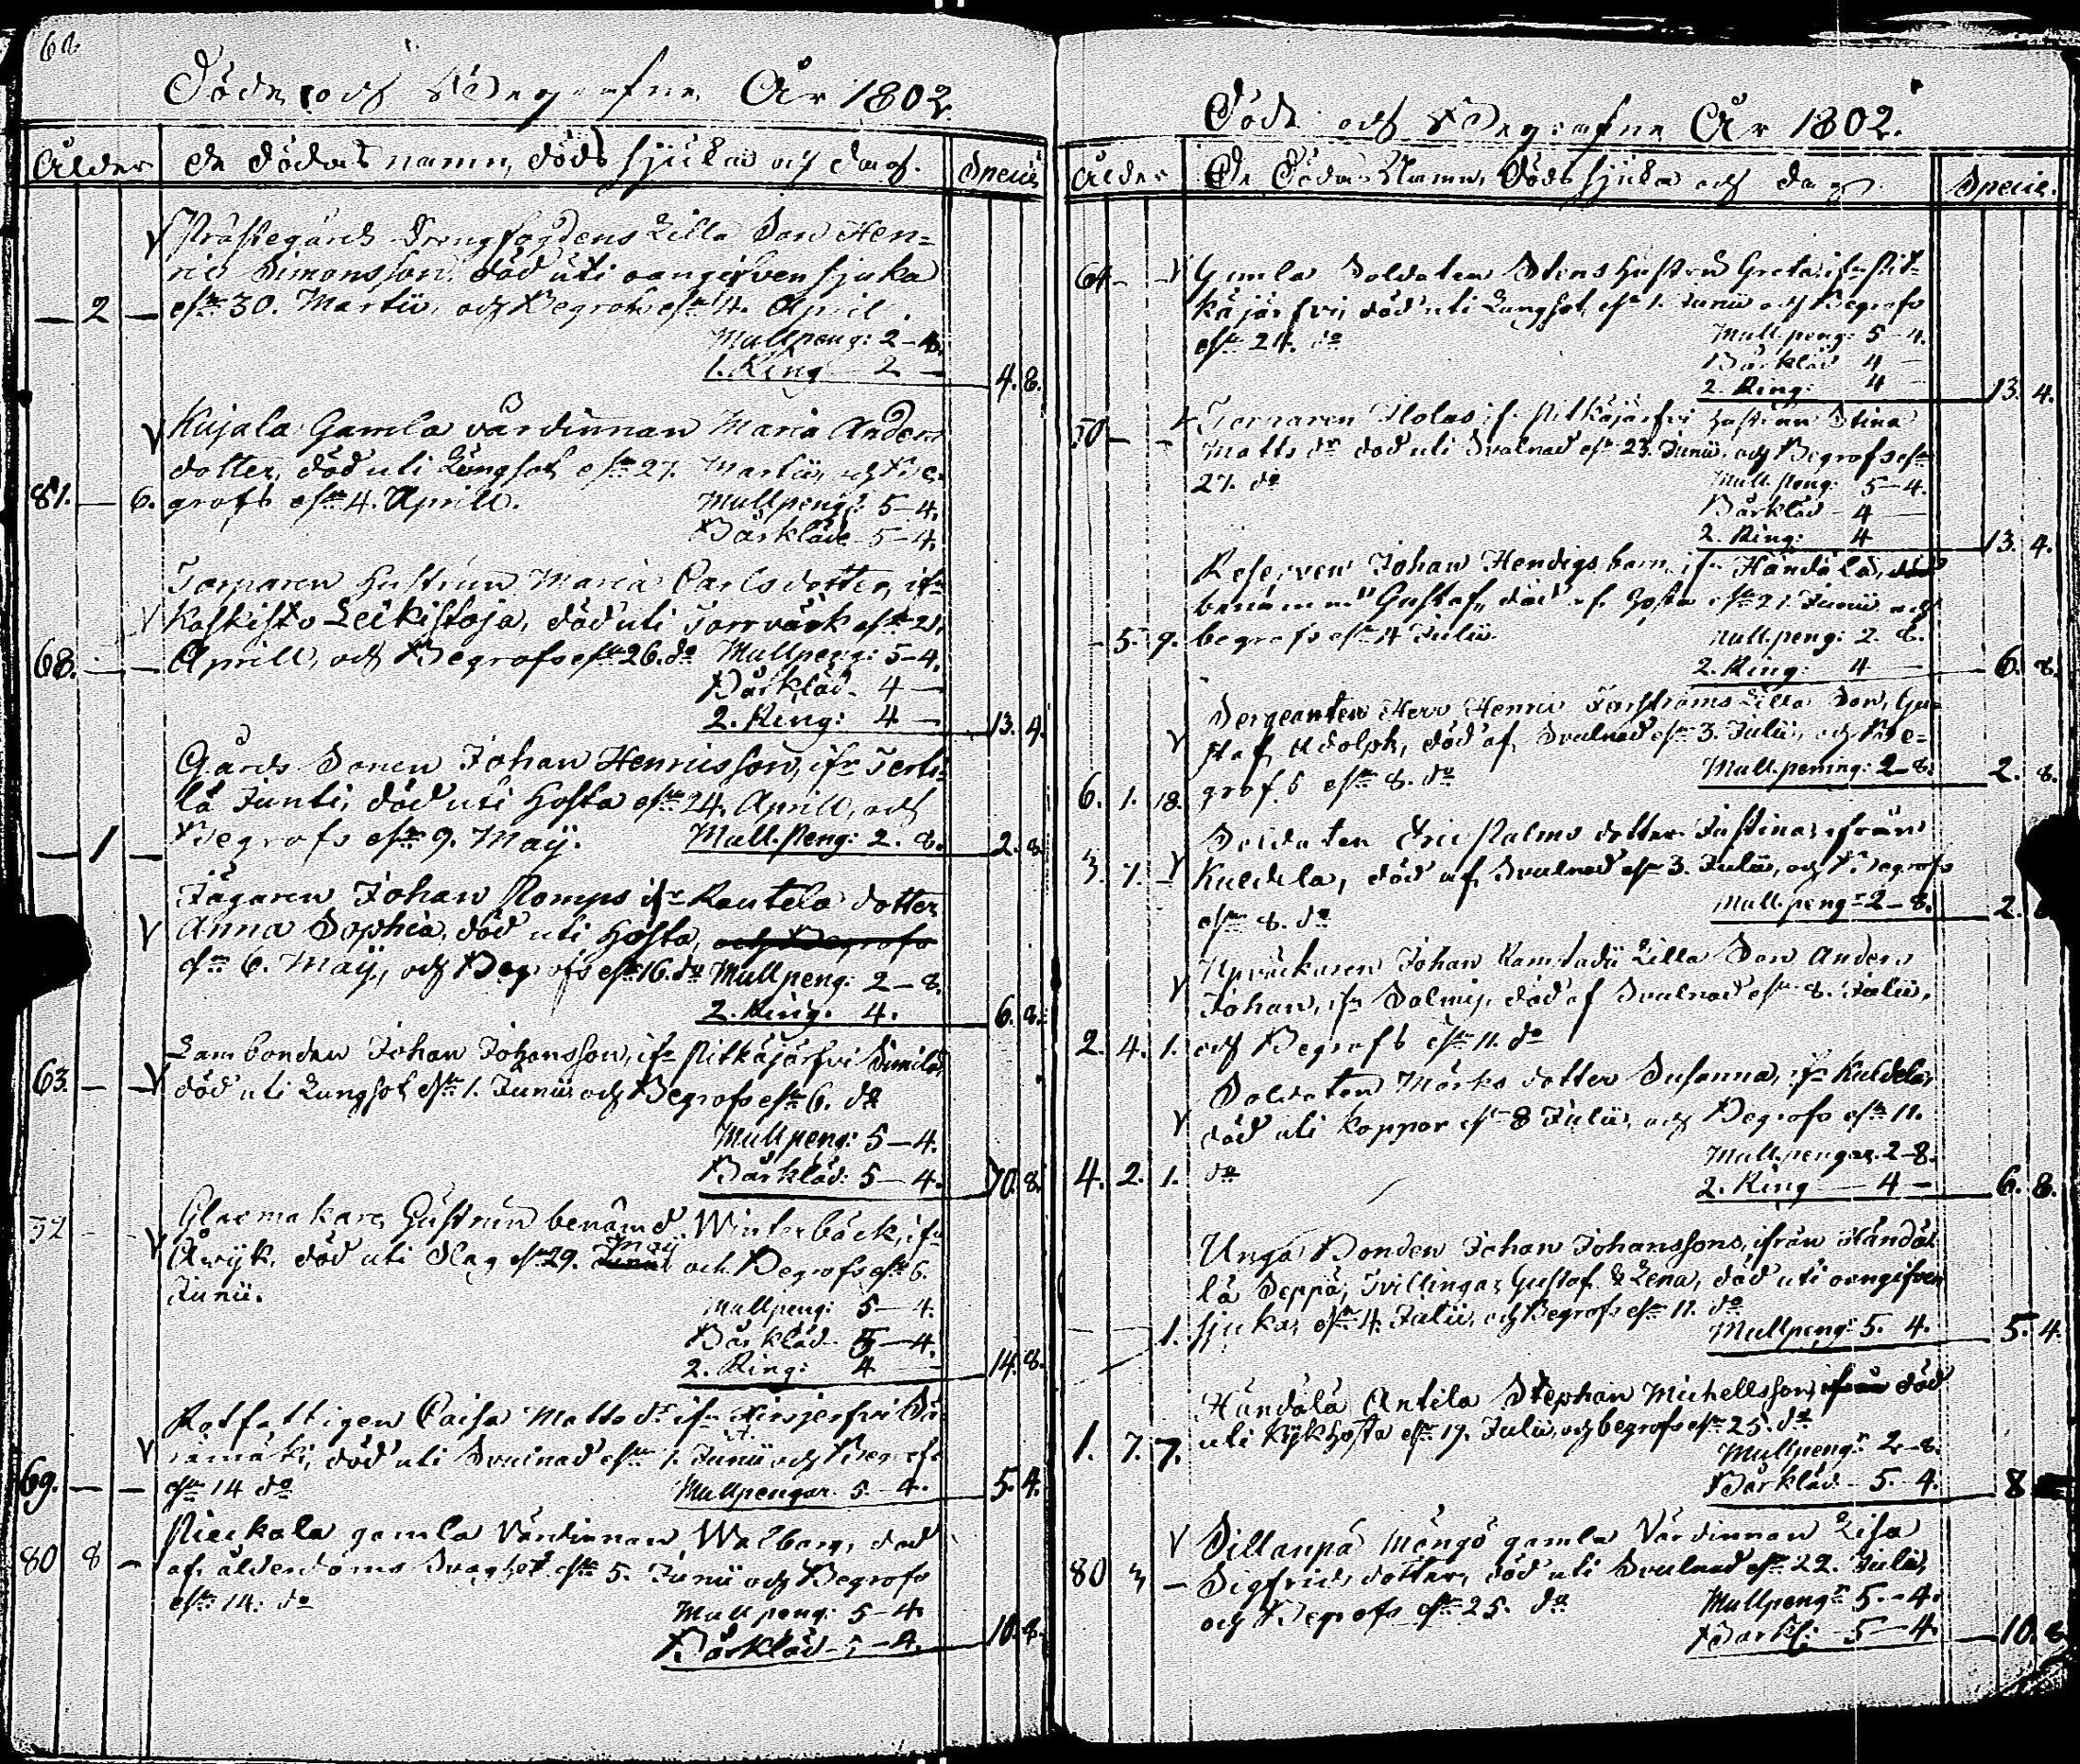 Döde och Begrafne År 1802.
Ålder de dödas namn, döds sjuka och dag. Specie
Prästegårds Drengfogdens Lilla Son Hen=
ric Simonsson död uti oangifven sjuka
— 2 — d. 30. Martii, och Begrofs d. 4. April.
Mullpeng: 2—8.
1. Ring 2 — 4. 8.
Kujala Gamla värdinnan Maria Anders
dotter, död uti Lungsot d. 27. Martii, och Be-
81. — 6. grofs d. 4. Aprill. Mullpeng: 5—4.
Bårkläde 5—4.
Torparen hustrun Maria Carlsdotter, ifr
Koskisto Leikistoja, död uti Torrvärk d. 21.
68. — — Aprill, och Begrofs d. 26. do Mullpeng: 5—4.
Bårkläd. 4 —
2. Ring: 4 — 13. 4.
Gårds Sonen Johan Henricsson, ifr Tertti=
lä Junti, död uti Hosta d. 24. Aprill, och
— 1 — Begrofs d. 9. Maÿ. Mull.Peng: 2. 8. 2. 8.
Jägaren Johan Romps ifr Rautela dotter
Anna Sophia, död uti Hosta, och Begrofs
d. 6. Maÿ, och Begrofs d. 16. do Mullpeng: 2—8.
2. Ring. 4. 6. 8.
Lambonden Johan Johansson, ifr Pitkäjärfvi Simila,
63. — — död uti Lungsot d. 1. Junii och Begrofs d. 6. do
Mullpeng: 5—4.
Bårkläd: 5—4. 10. 8.
Glasmakare Hustrun benämd Winterbäck, ifr
Maÿ
Åwijk, död uti Slag d. 29. och Begrofs d. 6.
Junii.
Mullpeng: 5—4.
Bårkläd. 5—4.
2. Ring: 4 14. 8.
Rotfattigen Caisa Mattsdr ifr
död uti Svulnad d. 1. Junii och Begrofs
69. — — d. 14 do Mullpengar. 5—4. 5. 4.
Pieskala gamla Värdinnan Walborg, död
80 8 — af ålderdoms svaghet d. 5. Junii och Begrofs
d. 14. do
Mullpeng: 5—4.
Bårkläd 5—4. 10. 8.
Döde och Begrafne År 1802.
Ålder De Dödas Namn, Döds sjuka och dag. Specie.
64 — — Gamla Soldaten Stens hustru Greta ifr Pit=
käjärfvi, död uti Lungsot d. 1. Junii och Begrofs
d. 24. do Mull.peng: 5—4.
Bårkläd 4 —
2. Ring: 4 — 13. 4.
50 — — Torparen Holas ifr Pitkäjärfvi hustrun Stina
Matts dr död uti Svulnad d. 23. Junii, och Begrofs d.
27. do Mull.Peng: 5—4.
Bårkläd 4 —
2. Ring: 4 13. 4.
Reserven Johan Hendigs barn ifr Händälä, död
benämnd Gustaf, död af Hosta d. 21. Junii och
— 5. 9. begrofs d. 4 Julii Mull.peng: 2. 8.
2. Ring: 4 — 6. 8.
Sergeanten Herr Henric Lilla Son, Gu=
staf Adolph, död af Svulnad d. 3. Julii, och Be=
6. 1. 18. grofs d. 8. do Mull.pening: 2—8. 2. 8.
Soldaten Eric Palms dotter Justina, ifrån
3. 7. — Kuldela, död af Svulnad d. 3. Julii, och Begrofs
d. 8. do Mull.peng: 2—8. 2.
Johan Lilla Son Anders
Johan, ifr Salmis, död af Svulnad d. 8. Julii,
2. 4. 1. och Begrofs d. 11. do
Soldaten Mörks dotter Susanna, ifr Kuldela,
död uti koppor d. 8 Julii, och Begrofs d. 11.
4. 2. 1. do
Mullpengar. 2—8.
2. Ring — 4 — 6. 8.
Unga Bonden Johan Johanssons, ifrån Händä=
lä Seppä, Tvillingar Gustaf & Lena, död uti oangifven
— — 1. sjuka, d. 4. Julii, och Begrofs d. 11. do
Mullpeng: 5. 4. 5. 4.
Händälä Antila Stephan Michellsson, ifrån död
1. 7. 7. uti Kikhosta d. 17. Julii, och begrofs d. 25. do
Mullpeng: 2—8.
Bårkläd 5. 4. 8
Sillanpä Möngö gamla Värdinnan Lisa
80 3 — Sigfrids dotter, död uti Svulnad d. 22. Julii,
och Begrofs d. 25. do Mullpeng: 5—4.
Barkl: 5—4. 10. 8